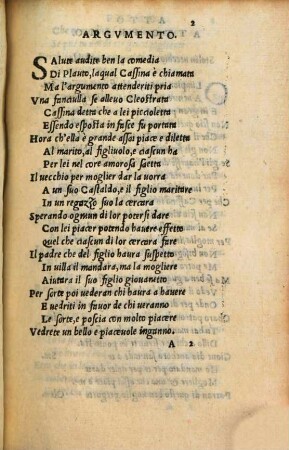 2
ARGVMENTO.
SAlute audite ben la comedia
Di Plauto, laqual Cassina è chiamata
Ma l'argumento attenderiti pria
Vna fanciulla se alleuo Cleostrata
Cassina detta che a lei piccioletta
Essendo esposta in fasce fu portata
Hora ch'ella è grande assai piace e diletta
Al marito, al figliuolo, e ciascun ha
Per lei nel core amorosa saetta
Il uecchio per moglier dar la uorra
A un suo Castaldo, e il figlio maritare
In un regazzo suo la cercara
Sperando ogniun di lor potersi dare
Con lei piacer potendo hauere effetto
quel che ciascun di lor cercara fare
Il padre che del figlio haura suspetto
In uilla il mandara, ma la mogliere
Aiutara il suo figlio giouanetto
Per sorte poi uederan chi haura a hauere
E uedriti in fauor de chi uerranno
Le sorte, e poscia con molto piacere
Vedrete un bello e piaceuole inganno.
A 2